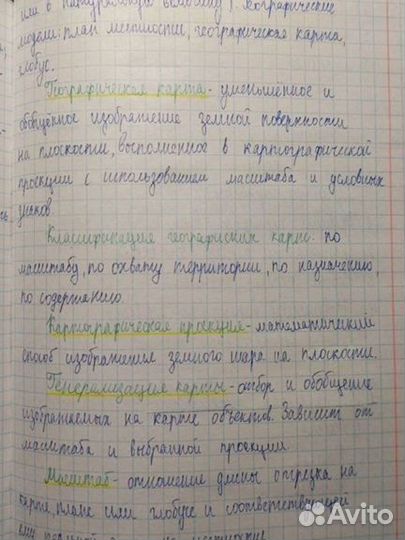 или в натуральную величину). Географические
модели: план местности, географическая карта,
глобус.
Географическая карта - уменьшённое и
обобщённое изображение земной поверхности
на плоскости, выполненное в картографической
проекции с использованием масштаба и условных
знаков.
Классификация географических карт: по
масштабу, по охвату территории, по назначению,
по содержанию.
Картографическая проекция - математический
способ изображения земного шара на плоскости.
Генерализация карты - отбор и обобщение
изображаемых на карте объектов. Зависит от
масштаба и выбранной проекции.
Масштаб - отношение длины отрезка на
карте, плане или глобусе и соответствующей
Avito